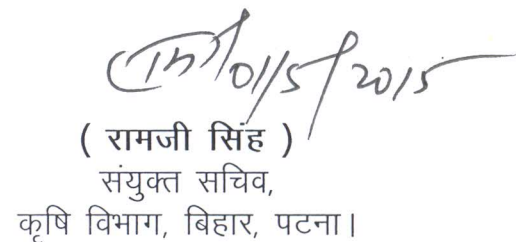 01/5/2015
( रामजी सिंह )
संयुक्त सचिव,
कृषि विभाग, बिहार, पटना।